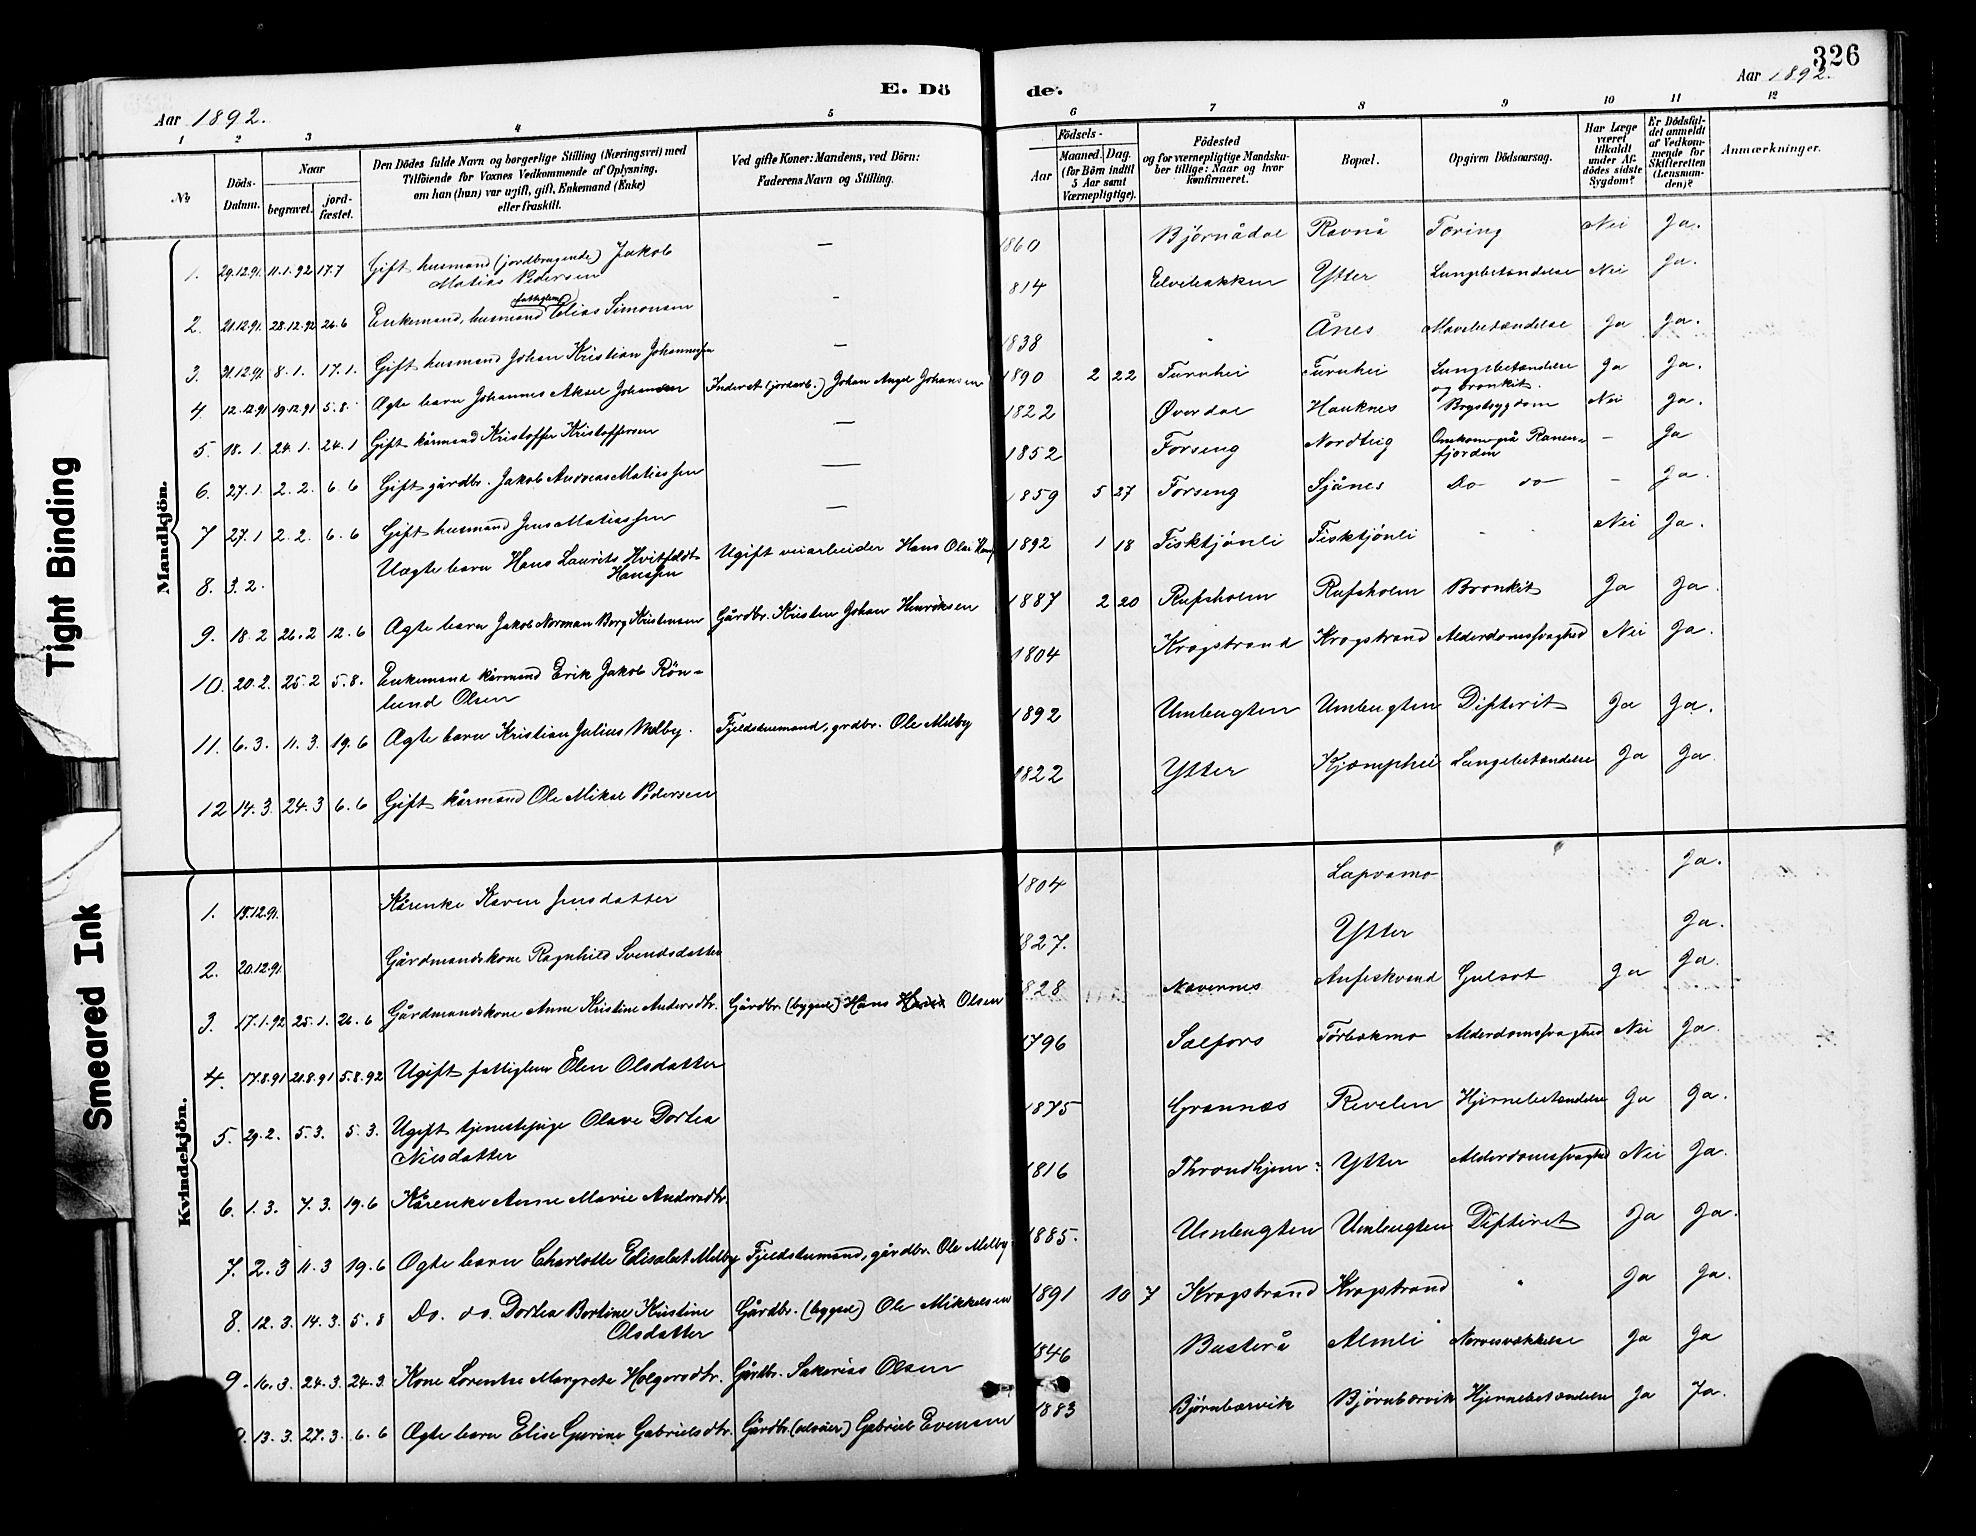 326
E. Dö de.
Aar 1892.
Aar 1892.
1 2 3 4 5 6 7 8 9 10 11 12
No.
Döds-Datum.
Naar
begravet.
jord-fæstet.
Den Dödes fulde Navn og borgerlige Stilling (Næringsvei) med
Tilföiende for Voxnes Vedkommende af Oplysning,
om han (hun) var ugift, gift, Enkemand (Enke)
eller fraskilt.
Ved gifte Koner: Mandens, ved Börn:
Faderens Navn og Stilling.
Födsels-
Aar
Maaned. Dag.
(for Börn indtil
5 Aar samt
Værnepligtige).
Födested
og for værnepligtige Mandska-
ber tillige: Naar og hvor
konfirmeret.
Bopæl.
Opgiven Dödsaarsag.
Har Læge
været
tilkaldt
under Af-
dödes sidste
Sygdom?
Er Dödsfal-
det anmeldt
af Vedkom-
mende for
Skifteretten
(Lensman-
den)?
Anmærkninger.
Mandkjön.
1. 29.12.91. 11.1.92 17.7 Gift husmand (jordbrugende) Jakob — 1860 Bjørnådal Ravnå Tæring Nei Ja.
Matias Pedersen
2. 21.12.91. 28.12.92 26.6 Enkemand, husmand fattiglem Elias Simonsen - 1814 Elvebakken Ytter Lungebetændelse Nei Ja.
3. 21.12.91. 8.1. 17.1. Gift husmand Johan Kristian Johannessen — 1838 " Ånes Mavebetændelse Ja Ja.
4 12.12.91 19.12.91 5.8. Ægte barn Johannes Aksel Johansen Inderst (jordarb.) Johan Angel Johansen 1890 2 22 Furuhei Furuhei Lungebetændelse Ja Ja.
og bronkit.
5. 18.1. 24.1. 24.1 Gift kårmand Kristoffer Kristoffersen — 1822 Øverdal Hauknes Brystsygdom Nei Ja.
6. 27.1. 2.2. 6.6 Gift gårdbr. Jakob Andreas Matiassen — 1852 Forseng Nordteig Omkom på Ranen- - Ja
fjorden
7 27.1 2.2. 6.6 Gift husmand Jens Matiassen — 1859 5 27 Forseng Sjånes Do do - Ja.
8. 3.2. Uægte barn Hans Laurits Hvitfeldt Ugift veiarbeider Hans Olai 1892 1 18 Fisktjønli Fisktjønli - Nei Ja.
Hanssen
9. 18.2 26.2 12.6 Ægte barn Jakob Norman Borg Kristensen Gårdbr. Kristen Johan Henriksen 1887 2 20 Rufsholm Rufsholm Bronkit Ja Ja
10. 20.2. 25.2 5.8. Enkemand kårmand Erik Jakob Rön- 1804 Krogstrand Krogstrand Alderdomssvaghed Nei Ja.
lund Olsen
11. 6.3. 11.3. 19.6 Ægte barn Kristian Julius Melby. Fjeldstuemand, grdbr. Ole Melby 1892 Umbugten Umbugten Difterit Ja Ja.
12 14.3. 24.3 6.6 Gift kårmand Ole Mikal Pedersen 1822 Ytter Kjæmphei Lungebetændelse Ja Ja
Kvindekjön.
1. 15.12.91. Kårenke Karen Jensdatter 1804 Lapramo Ja.
2. 20.12.91. Gårdmandskone Ragnhild Svendsdatter 1827. Ytter Ja.
3. 17.1.92 25.1. 26.6 Gårdmandskone Anne Kristine Andersdtr. Gårdbr. (bygsel) Hans Olsen 1828 Nævernes Aufeskvand Gulsot Ja Ja.
4. 17.8.91 21.8.91 5.8.92 Ugift fattiglem Elen Olsdatter 1796 Salfors Tørbakmo Alderdomssvaghed Nei Ja.
5. 29.2. 5.3. 5.3. Ugift tjenestepige Olave Dortea 1875 Grannæs Revelen Hjernebetændelse Ja Ja.
Nilsdatter
6. 1.3. 7.3. 19.6 Kårenke Anne Marie Andersdtr. 1816 Throndhjem Ytter Alderdomssvaghed Nei Ja.
7. 2.3 11.3 19.6 Ægte barn Charlotte Elisabet Melby Fjeldstuemand, gårdbr. Ole Melby. 1885. Umbugten Umbugten Difterit Ja Ja.
8. 12.3. 14.3. 5.8 Do. do. Dortea Bertine Kristine Gårdbr. (bygsel) Ole Mikkelsen 1891 10 7 Krogstrand Krogstrand " Ja Ja.
Olsdatter
9. 16.3. 24.3. 24.3. Kone Lorentse Margrete Holgersdtr. Gårdbr. Sakarias Olsen 1846 Busterå Almli Nervesvækkelse Ja Ja
13.3. 27.3. 6.6 Ægte barn Elise Gurine Gabrielsdtr. Gårdbr. (selveier) Gabriel Evensen 1883 Bjørnbærvik Bjørnbærvik Hjernebetændelse Ja Ja.
Tight Binding
Smeared Ink